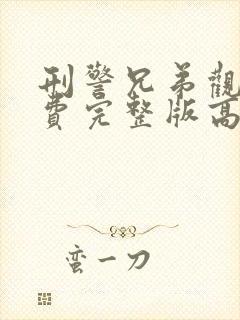 刑警兄弟觀
費完整版高
蛮一刀